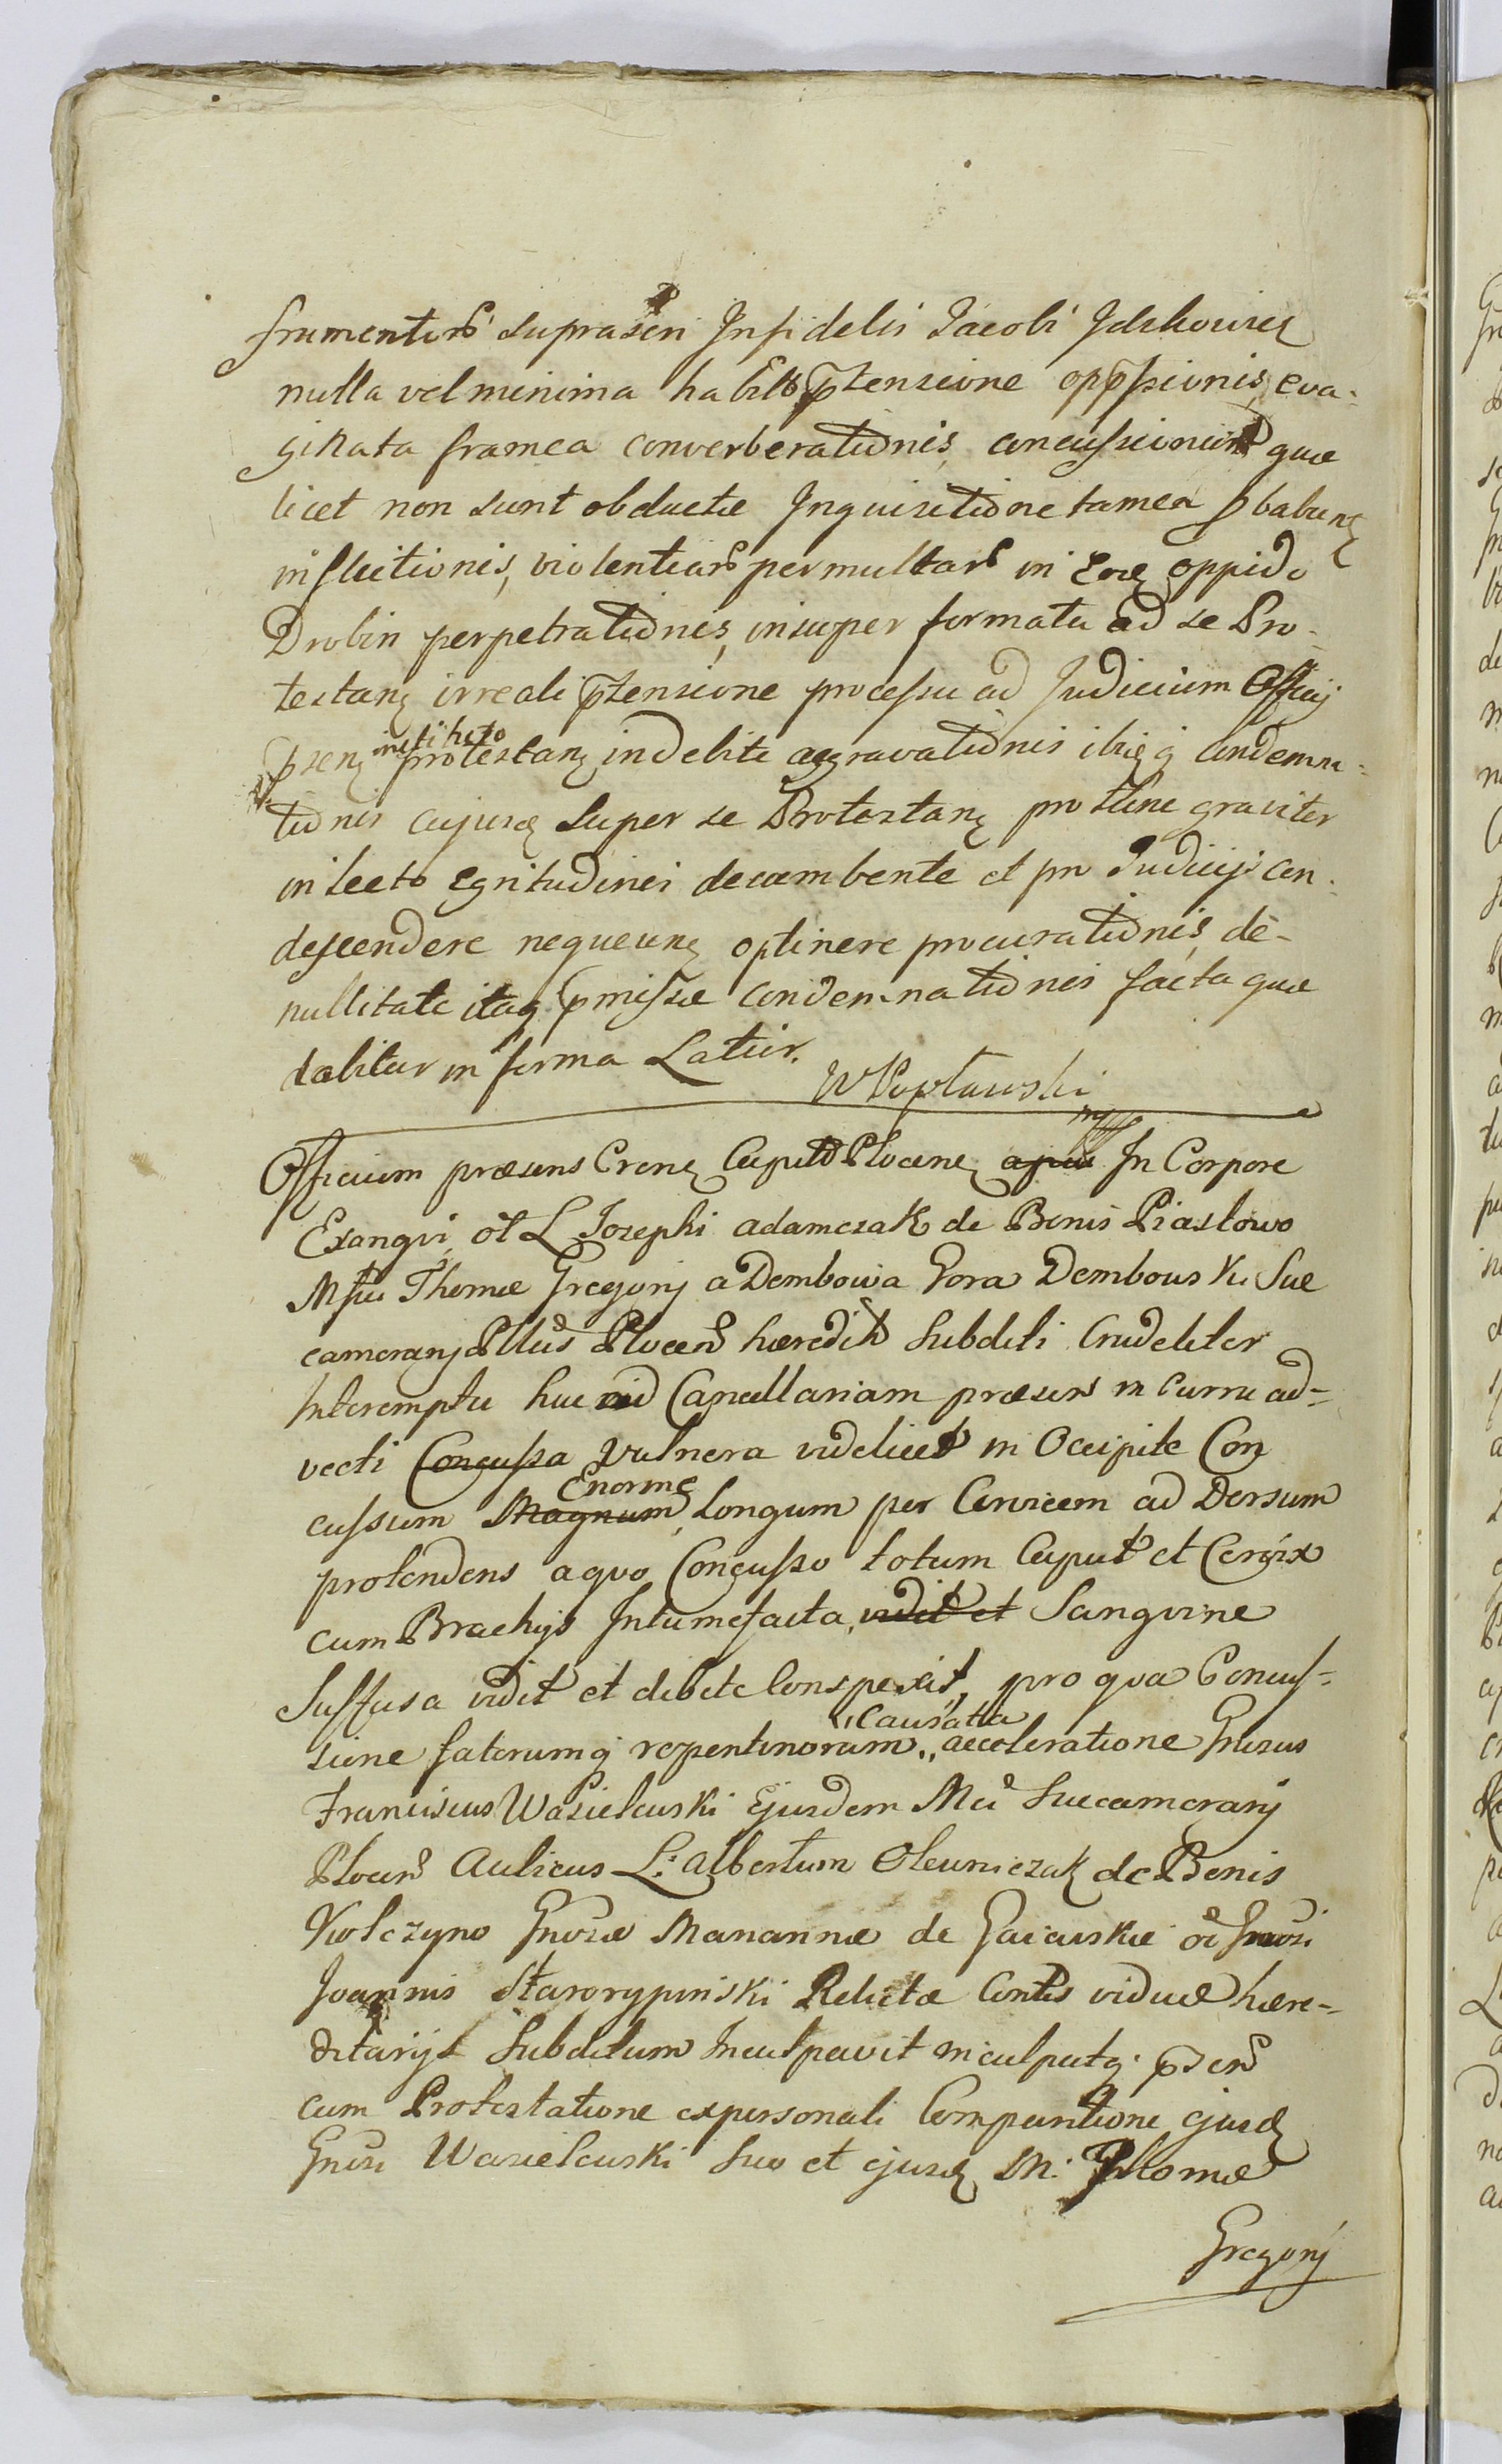 frumentorũ suprascri Infidelis Jacobi Jelskowicz
nulla vel minima habita p̃tensione opp̃ssionis, eva-
ginata framea converberationis, concussionum quæ
licet non sunt obductæ Inquisitione tamen p̃babunt
inflictionis, violentiarũ permultarũ in eod oppido
Drobin perpetrationis, insuper formata ad se Pro-
testanẽ irreali p̃tensione processu ad Judicium Officij
p̃senẽ instituto protestanẽ indebite aggravationis ibiq̃ condemna-
tionis cujusd super se Protestanẽ pro tunc graviter
in lecto egritudinis decumbente et pro Judicijs con-
descendere nequeunẽ optinere procurationis, de
nullitate itaq̃ p̃missæ condemnationis facta quæ
dabitur in forma Latior.
W Popławski
mpp
Officium præsens Crenẽ Capitũ Plocenẽ apud In Corpore
Exangvi, ol̃ L Josephi Adamczak de Bonis Piastowo
Msci Thomæ Gregorij a Dembowa Gora Dembowski Suc
camerarij Pllus Plocenũ hæredit Subditi Crudeliter
Interempti huc ad Cancellariam præsens in Curru ad=
vecti Concussa Vulnera videlicet in Occipite Con
cussum Magnum Enorme, Longum per Cervicem ad Dorsum
protendens a qvo Concusso totum Caput et Cervix
cum Brachijs Intumefacta, vidit et Sangvine
Suffusa vidit et debite Conspexit, pro qva Concus=
sione faterumq̃ repentinorum "causata" acceleratione Gnosus
Franciscus Wasielewski Ejusdem Mci Succamerarij
Plocenũ Aulicus L: Albertum Olewniczak de Bonis
Wolczyno Gnosæ Mariannæ de Gaiewskie ol̃ Gnosi
Joannis Starorypinski Relictæ Contis viduæ hære=
ditarijs Subditum Inculpavit inculpatq̃. p̃senũ
cum Protestatione ex personali Comparitione ejusd
Gnosi Wasielewski Suo et ejusd M: Thomæ
Gregorij